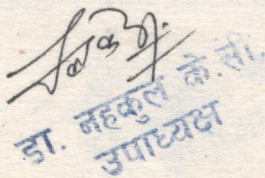 डा. नहकुल के. सी.
उपाध्यक्ष